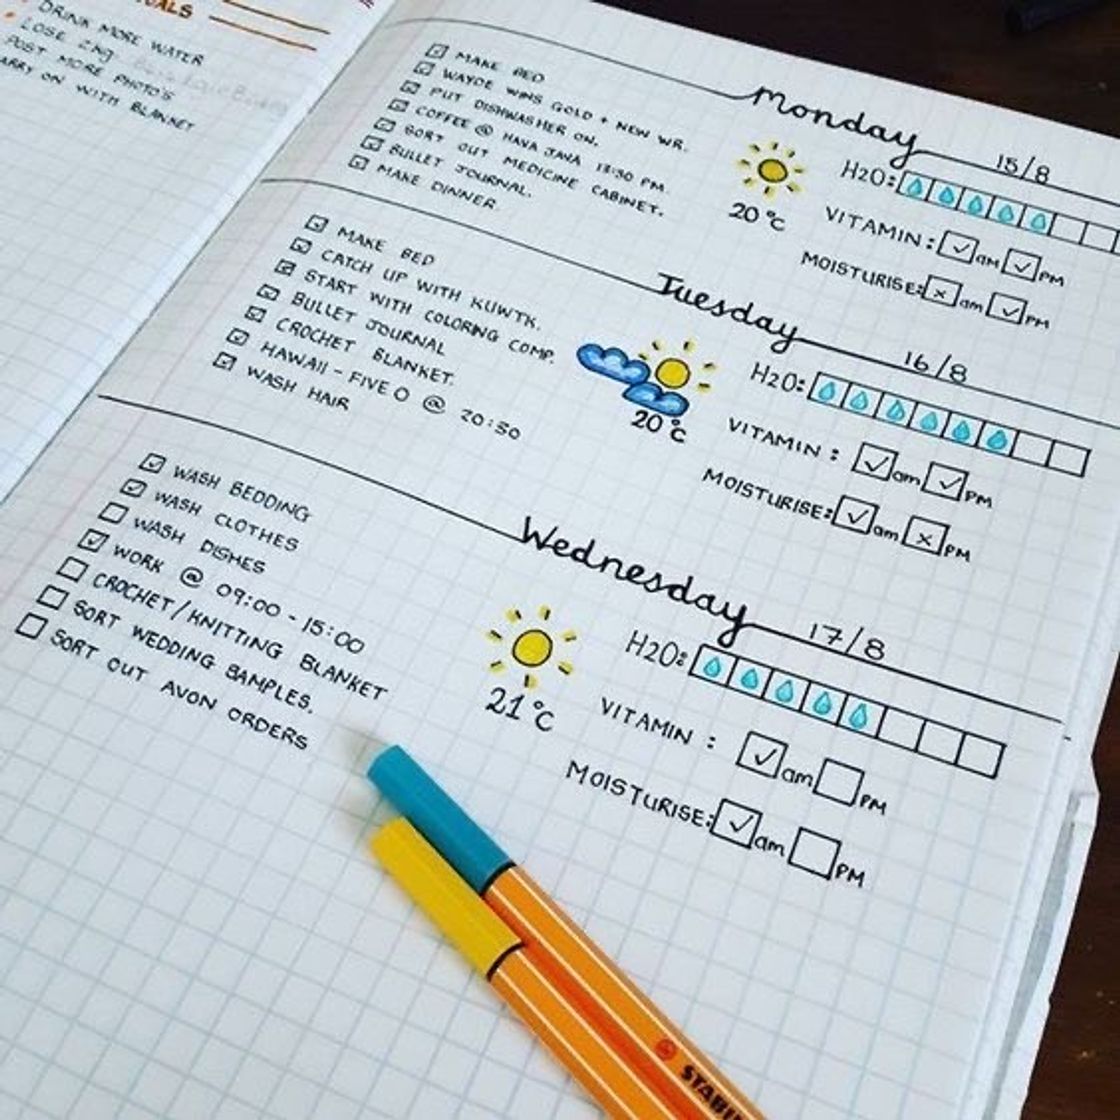 DRINK MORE WATER
LOSE 2Kg
POST MORE PHOTO'S
ARRY ON WITH BLANKET
Monday 15/8
MAKE BED
WAYDE WINS GOLD + NEW WR.
PUT DISHWASHER ON.
COFFEE @ HAVA JAVA 13:30 PM
SORT OUT MEDICINE CABINET.
BULLET JOURNAL.
MAKE DINNER.
20 °C
H2O:
VITAMIN: am PM
MOISTURISE: am PM
Tuesday 16/8
MAKE BED
CATCH UP WITH KUWTK.
START WITH COLORING COMP.
BULLET JOURNAL
CROCHET BLANKET.
HAWAII - FIVE O @ 20:30
WASH HAIR
20 °C
H2O:
VITAMIN : am PM
MOISTURISE: am PM
Wednesday 17/8
WASH BEDDING
WASH CLOTHES
WASH DISHES
WORK @ 09:00 - 15:00
CROCHET/KNITTING BLANKET
SORT WEDDING SAMPLES.
SORT OUT AVON ORDERS
21 °C
H2O:
VITAMIN : am PM
MOISTURISE: am PM
STABIL